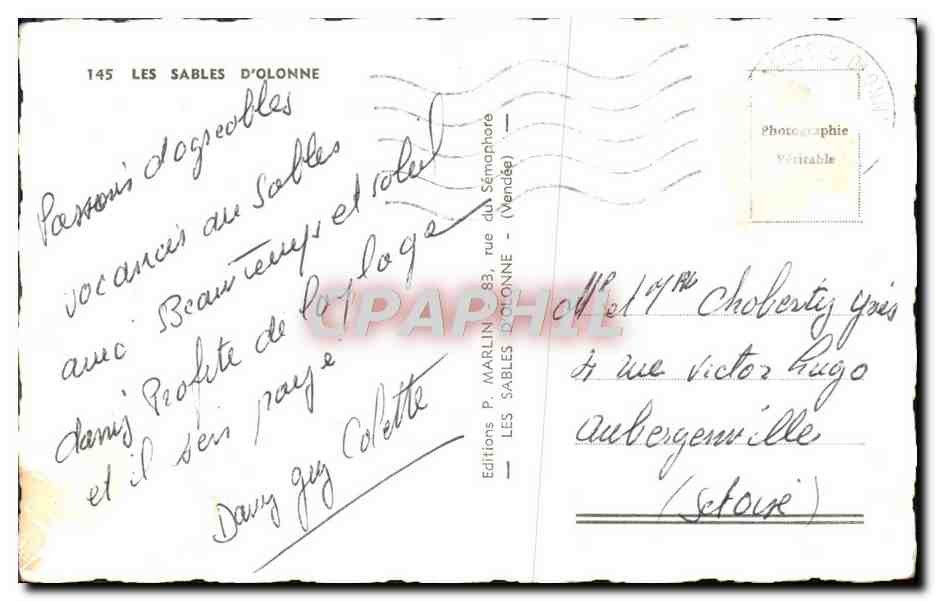 145 LES SABLES D'OLONNE
Passons d'agreables
vacances au Sables
avec Beau Temps et soleil
dany Profite de la plage
et il s'en paye
Dany Guy Colette
Editions P. MARLIN - 83, rue du Sémaphore
— LES SABLES D'OLONNE - (Vendée) —
Photographie
Véritable
CPAPHIL
Mr et Mme Choberty Yves
4 rue victor hugo
Aubergenville
(Set oise)